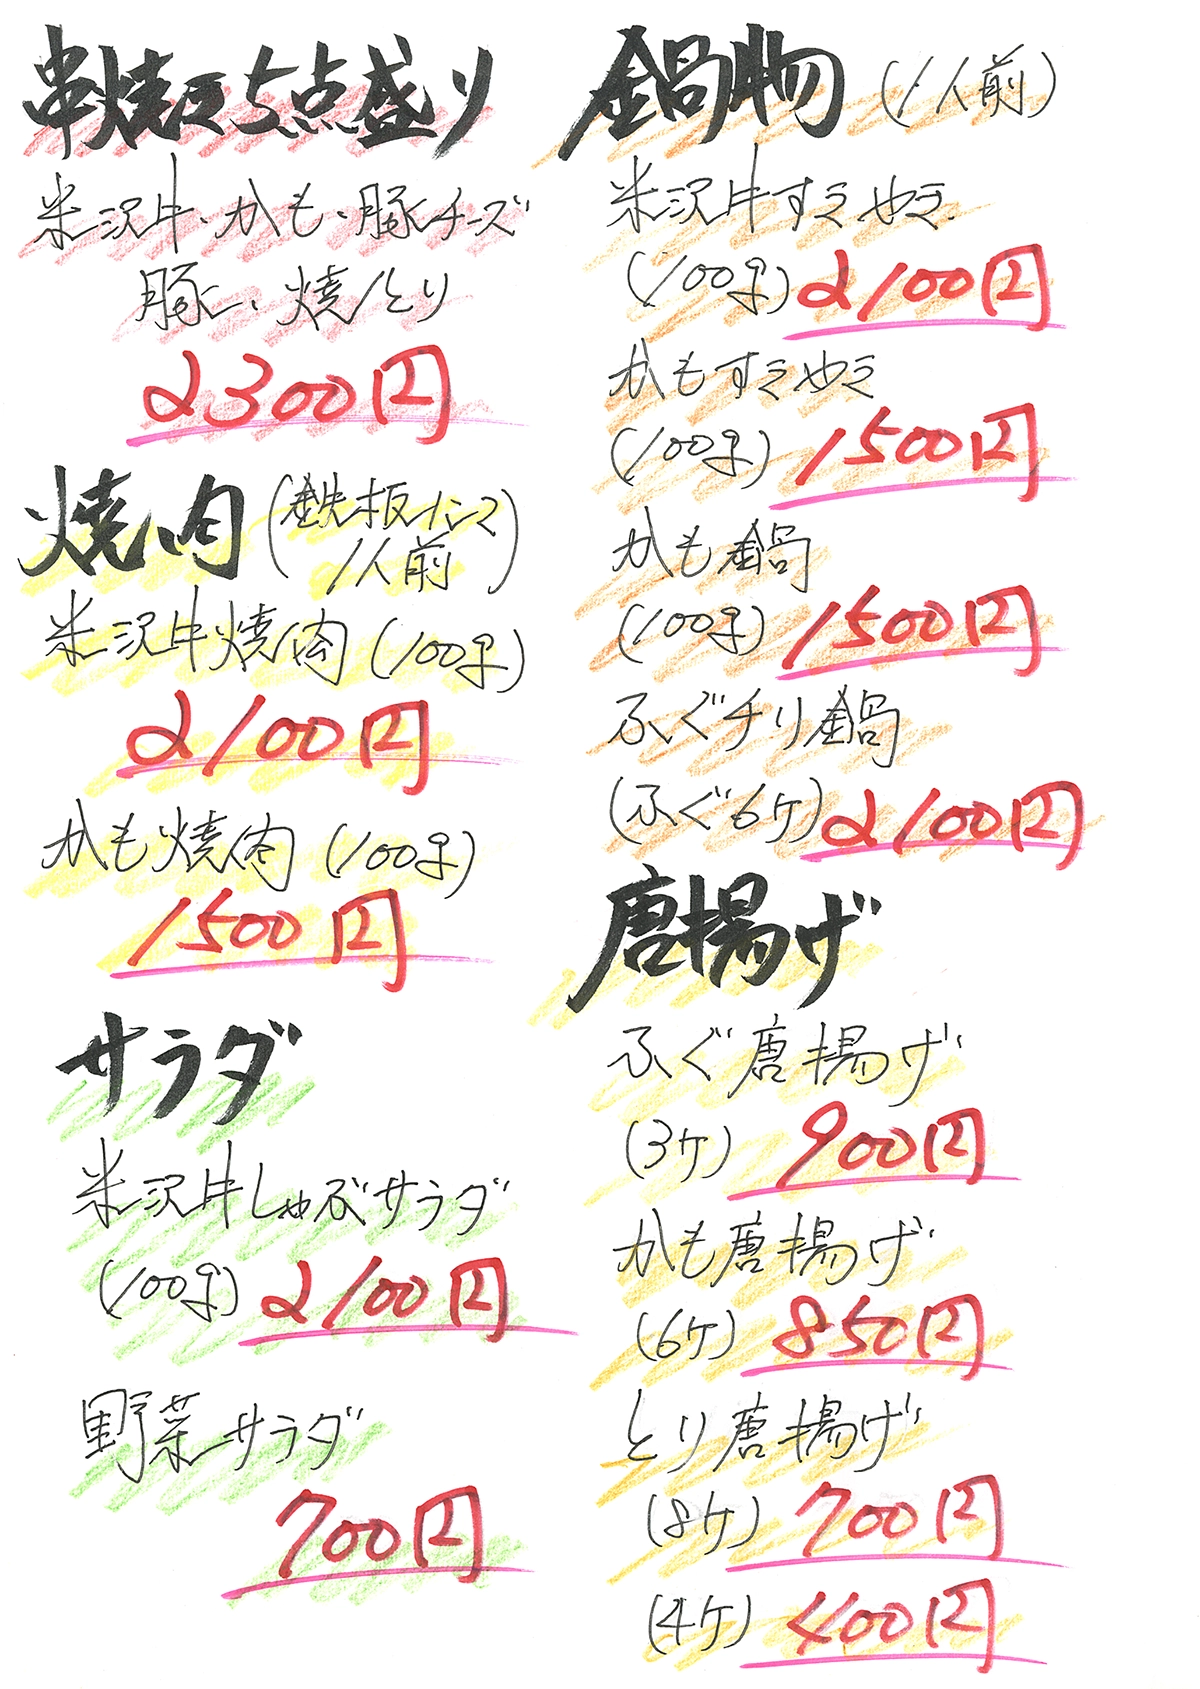 串焼き5点盛り
米沢牛、かも、豚チーズ
豚、焼とり
2300円
焼肉(鉄板
1人前)
米沢牛焼肉(100g)
2100円
かも焼肉(100g)
1500円
サラダ
米沢牛しゃぶサラダ
(100g) 2100円
野菜サラダ
700円
鍋物(1人前)
米沢牛すきやき
(100g) 2100円
かもすきやき
(100g) 1500円
かも鍋
(100g) 1500円
ふぐチリ鍋
(ふぐ6ケ) 2100円
唐揚げ
ふぐ唐揚げ
(3ケ) 900円
かも唐揚げ
(6ケ) 850円
とり唐揚げ
(8ケ) 700円
(4ケ) 400円